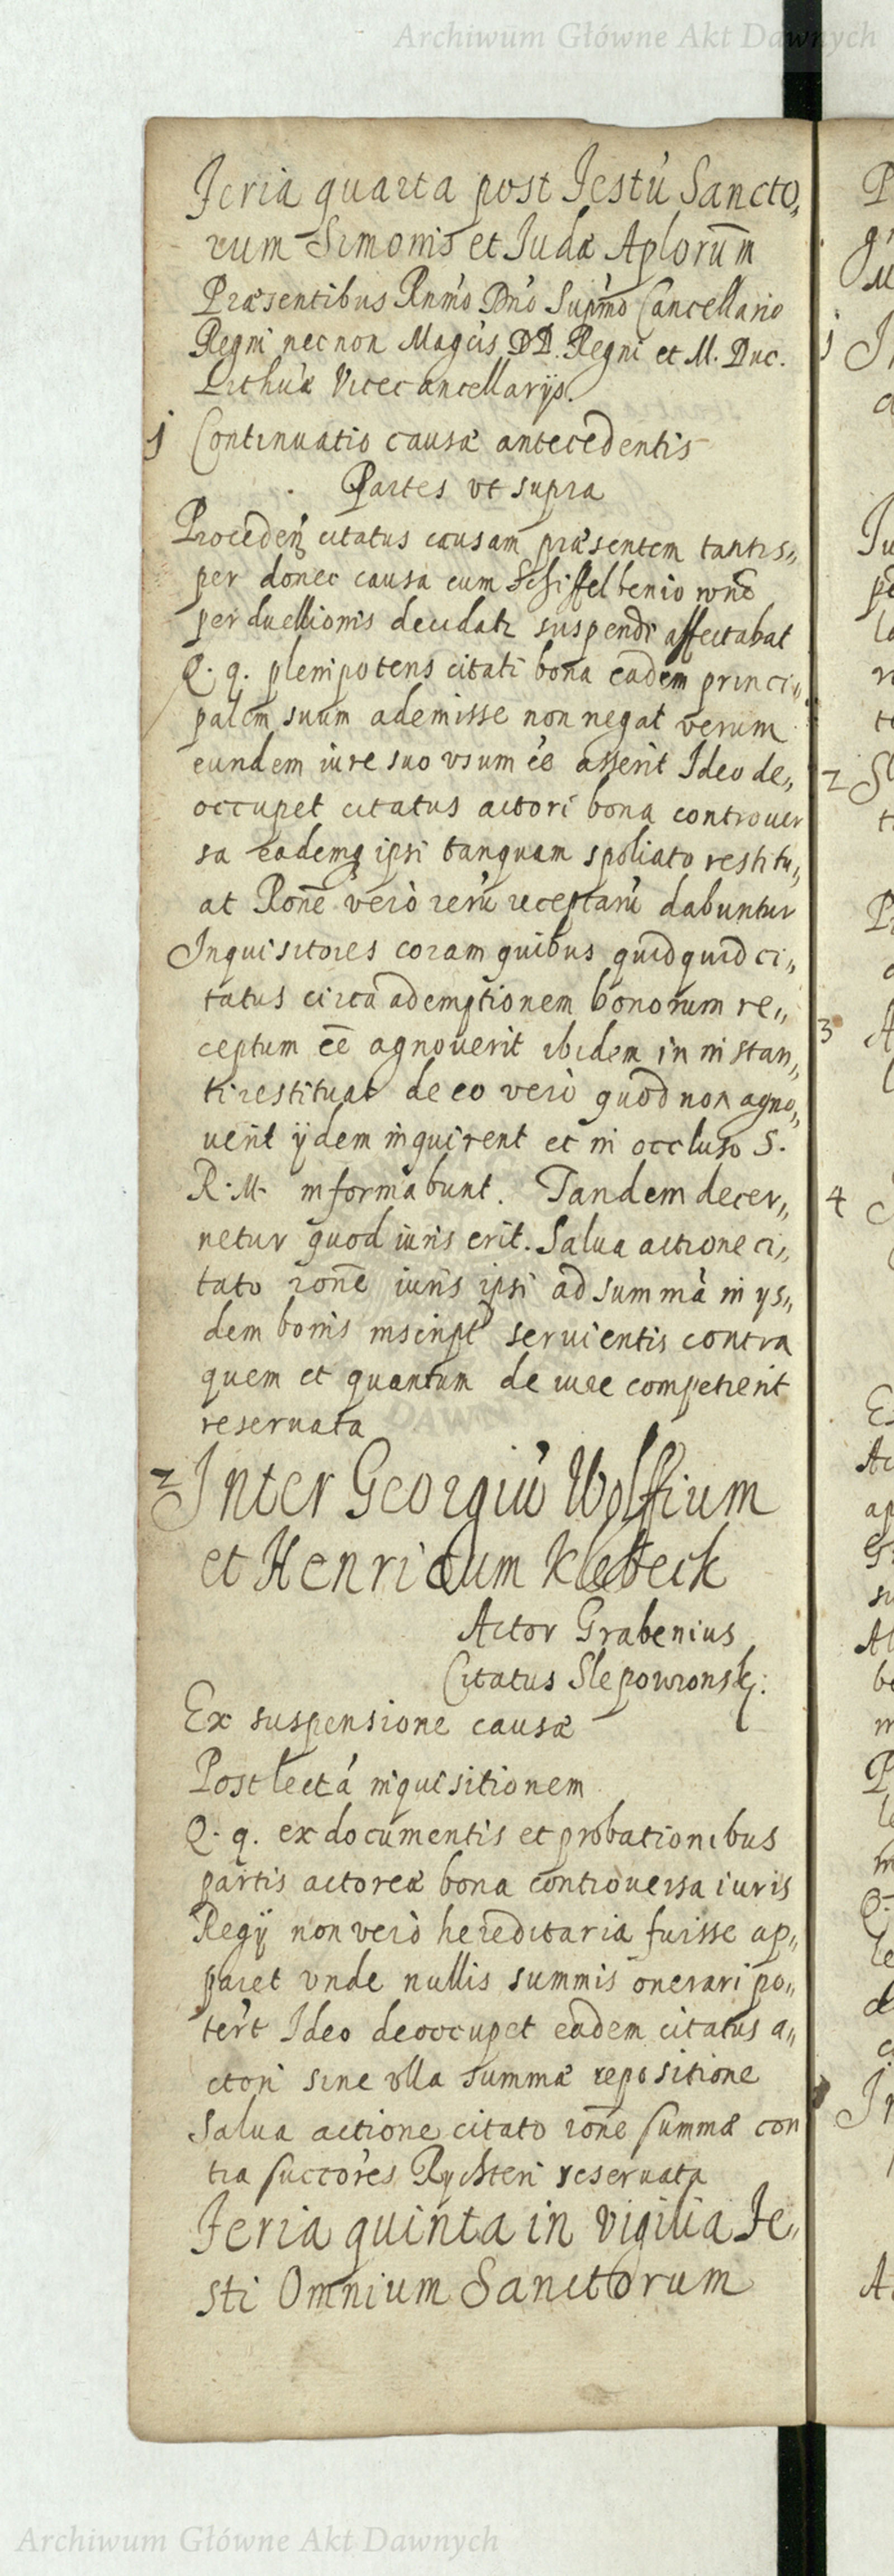 Archiwum Główne Akt Dawnych
Feria quarta post Festũ Sancto,
rum Simonis et Iudæ Aplorum̄
Præsentibus Rnmo Dno Supmo Cancellario
Regni nec non Magcis DD. Regni et M. Duc.
Lithuæ Vicecancellarijs.
1 Continuatio causæ antecedentis
Partes vt supra
Proceden citatus causam præsentem tantis„
per donec causa cum Schiffelbenio rōne
perduellionis decidatr suspendi affectabat
Q. q. plenipotens citati bona eadem princi„
palem suum ademisse non negat verum
eundem iure suo vsum eē asserit Ideo de„
occupet citatus actori bona controuer
sa eademq ipsi tanquam spoliato restitu„
at Rōne verò rerũ receptarũ dabuntur
Inquisitores coram quibus quidquid ci„
tatus circa ademptionem bonorum re„
ceptum eē agnouerit ibidem in instan„
ti restituat de eo verò quod non agno„
uerit ijdem inquirent et in occluso S.
R. M. informabunt. Tandem decer„
netur quod iuris erit. Salua actione ci„
tato rōne iuris ipsi ad summã in ys„
dem bonis inscript seruientis contra
quem et quantum de iure competierit
reseruata
2 Inter Georgiũ Wolffium
et Henricum Klebeck
Actor Grabenius
Citatus Slepowronsk:
Ex suspensione causæ
Post lectã inquisitionem
Q. q. ex documentis et probationibus
partis actoreæ bona controuersa iuris
Regij non verò hereditaria fuisse ap„
paret vnde nullis summis onerari po„
tert Ideo deoccupet eadem citatus a„
ctori sine vlla summæ repositione
Salua actione citato rōne summæ con
tra succores Rychteri reseruata
Feria quinta in vigilia Fe„
sti Omnium Sanctorum
2
3
4
Archiwum Główne Akt Dawnych